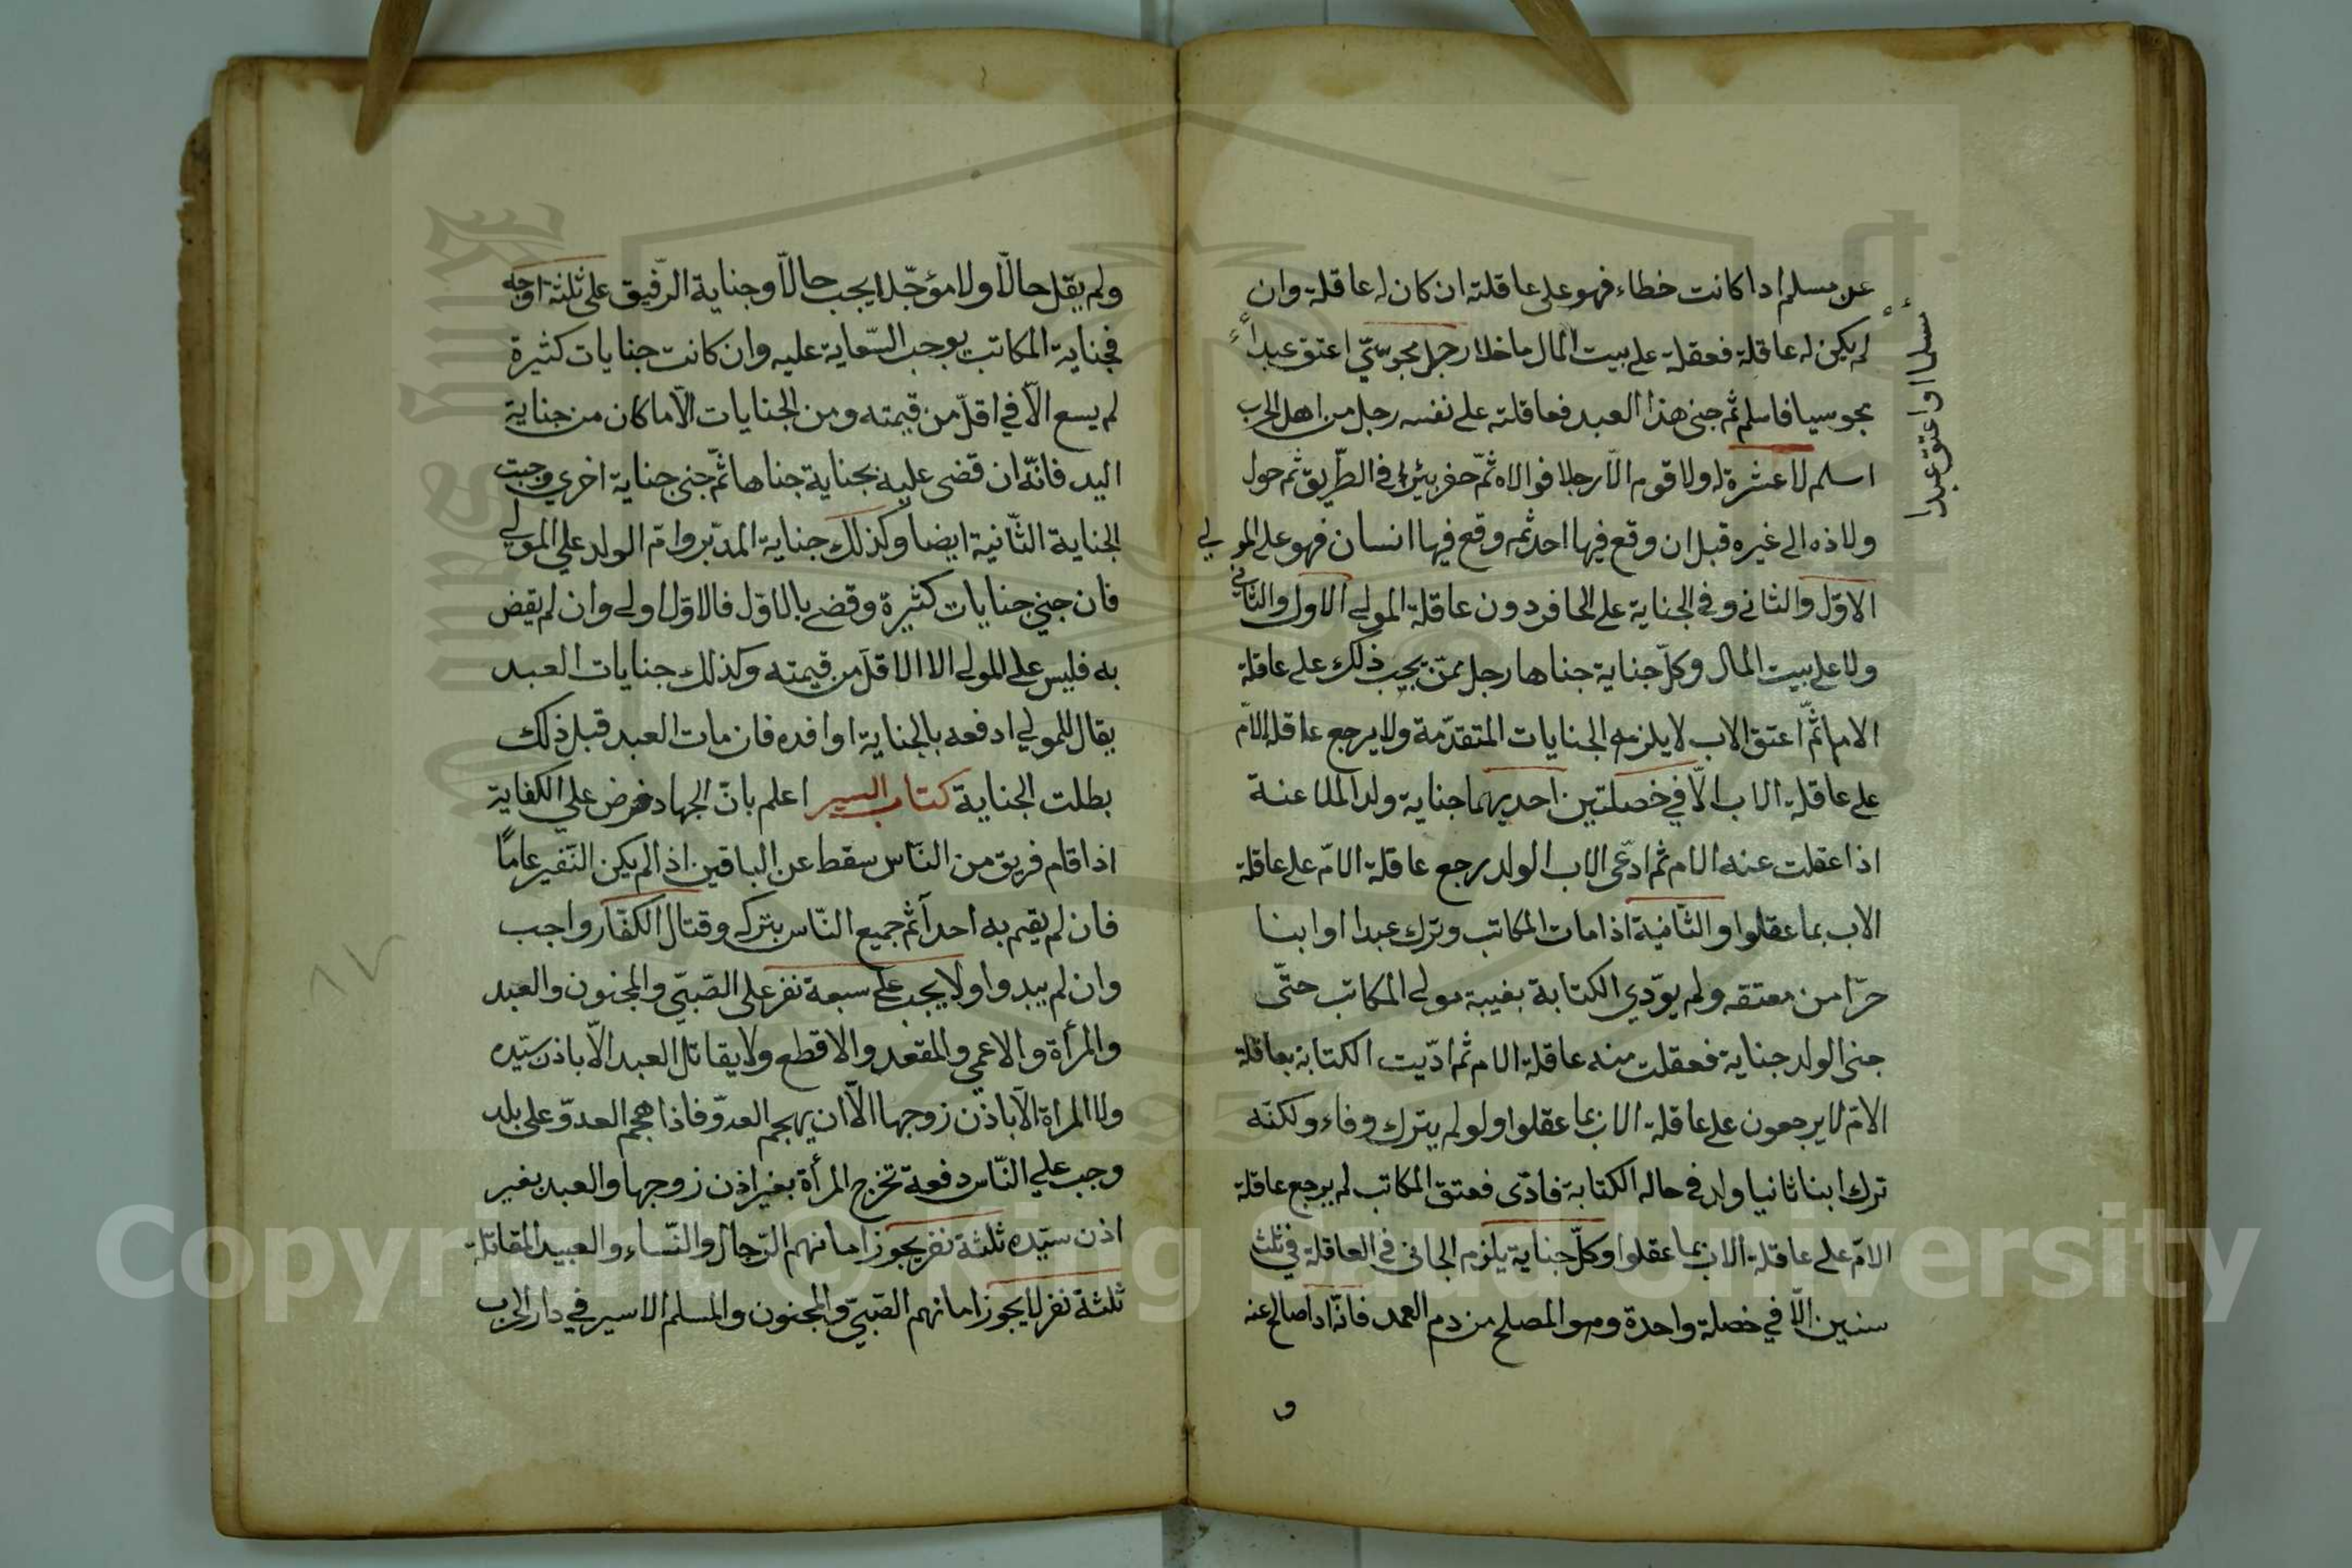 عن مسلم اذا كانت خطاء فهو على عاقلته ان كان له عاقلة وان
لم يكن له عاقلة فعقله على بيت المال ما خلا رجل مجوسيّ اعتق عبداً
مجوسيا فاسلم ثم جنى هذا العبد فعاقلته على نفسه رجل من اهل الحرب
اسلم لا عشرة له ولا قوم الّا رجلا فوالاه ثمّ حفر بئرا في الطّريق ثم حول
ولاذه الى غيره قبل ان وقع فيها احد ثم وقع فيها انسان فهو على المولي
الاوّل والثاني وفي الجناية على الحافر دون عاقلة المولى الاول والثاني
ولا على بيت المال وكلّ جناية جناها رجل ممّن يجب ذلك على عاقلة
الام ثمّ اعتق الاب لا يلزمه الجنايات المتقدّمة ولا يرجع عاقلة الامّ
على عاقلة الاب الّا في خصلتين احديهما جناية ولد الملاعنة
اذا عقلت عنه الام ثم ادّعى الاب الولد يرجع عاقلة الامّ على عاقلة
الاب بما عقلوا والثّانية اذا مات المكاتب وترك عبدا او ابنا
حرّا من معتقه ولم يودّي الكتابة بغيبة مولى المكاتب حتّى
جنى الولد جناية فعقلت منه عاقلة الام ثم ادّيت الكتابة بعاقلة
الامّ لا يرجعون على عاقلة الاب بما عقلوا ولو لم يترك وفاء ولكنّه
ترك ابنا ثانيا ولد في حاله الكتابة فادّى فعتق المكاتب لم يرجع عاقلة
الامّ على عاقلة الاب بما عقلوا وكلّ جناية يلزم الجانى في العاقلة في ثلث
سنين الّا في خصلة واحدة وهو المصلح من دم العمد فانّه اذا صالح عنه
و
او اعتق عبدا
ولم يقل حالّا ولا مؤجّلا يجب حالّا وجناية الرّقيق على ثلثة اوجه
فجناية المكاتب يوجب السّعاية عليه وان كانت جنايات كثيرة
لم يسع الّا في اقلّ من قيمته ومن الجنايات الّا ما كان من جناية
اليد فانّه ان قضى عليه بجناية جناها ثمّ جنى جناية اخرى وجبت
الجناية الثّانية ايضا وكذلك جناية المدبّر وامّ الولد علي المولي
فان جني جنايات كثيرة وقضى بالاوّل فالاوّل اولى وان لم يقض
به فليس على المولى الا الاقلّ من قيمته وكذلك جنايات العبد
يقال للمولي ادفعه بالجناية او افده فان مات العبد قبل ذلك
بطلت الجناية كتاب السير اعلم بانّ الجهاد فرض علي الكفاية
اذا قام فريق من النّاس سقط عن الباقين اذا لم يكن النّفير عامّا
فان لم يقم به احد آثم جميع النّاس بتركه وقتال الكفّار واجب
وان لم يبدوا ولا يجب علي سبعة نفر على الصّبيّ والمجنون والعبد
والمرأة والاعمي والمقعد والاقطع ولا يقاتل العبد الّا باذن سيّده
ولا المراة الّا باذن زوجها الّا ان يهجم العدوّ فاذا هجم العدوّ على بلد
وجب علي النّاس دفعه تخرج المرأة بغير اذن زوجها والعبد بغير
اذن سيّده ثلثة نفر يجوز امانهم الرّجال والنّساء والعبيد المقاتلة
ثلثة نفر لا يجوز امانهم الصّبيّ والمجنون والمسلم الاسير في دار الحرب
Copyright © King Saud University
King Saud University
1957